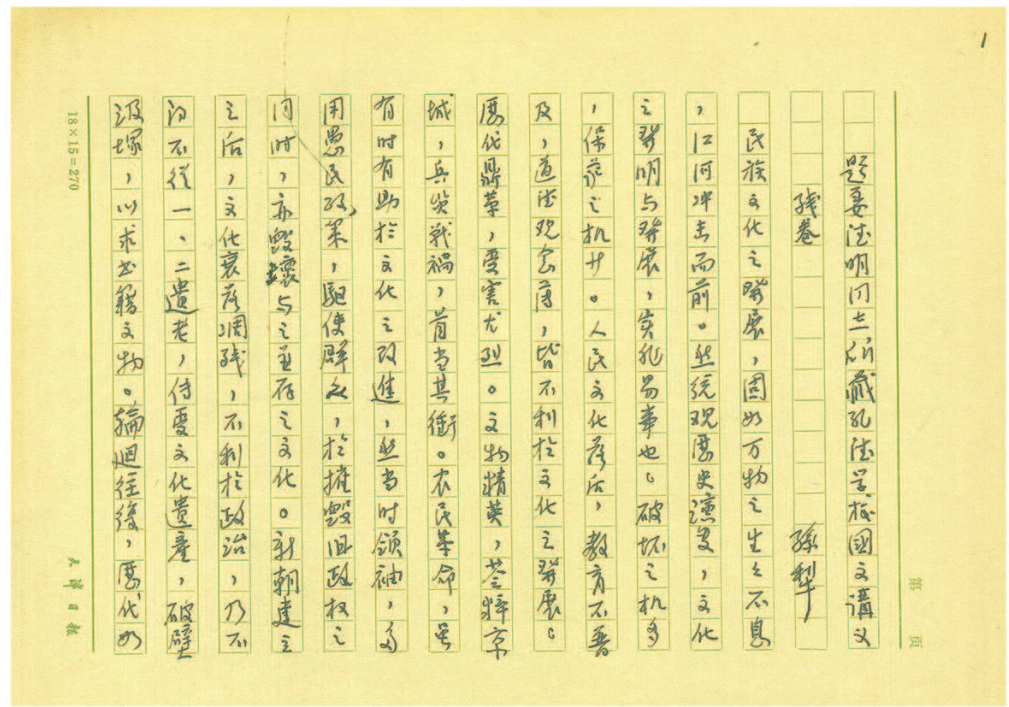 1
第 页
題姜德明同志所藏孔德学校國文講义
残卷 孫犁
民族文化之發展，固如万物之生生不息
，江河冲击而前。然统观歷史演变，文化
之發明与發展，实非易事也。破坏之机多
，保护之机少。人民文化落后，教育不普
及，道德观念薄，皆不利於文化之發展。
歷代鼎革，受害尤烈。文物精英，荟粹京
城，兵災戰禍，首当其衝。农民革命，虽
有时有助於文化之改進，然当时領袖，多
用愚民政策，驅使群众，於摧毁旧政权之
同时，亦毁壞与之並存之文化。新朝建立
之后，文化衰落凋残，不利於政治，乃不
得不從一、二遺老，传受文化遺產，破壁
汲塚，以求书籍文物。輪迴往復，歷代如
18×15=270
天津日报